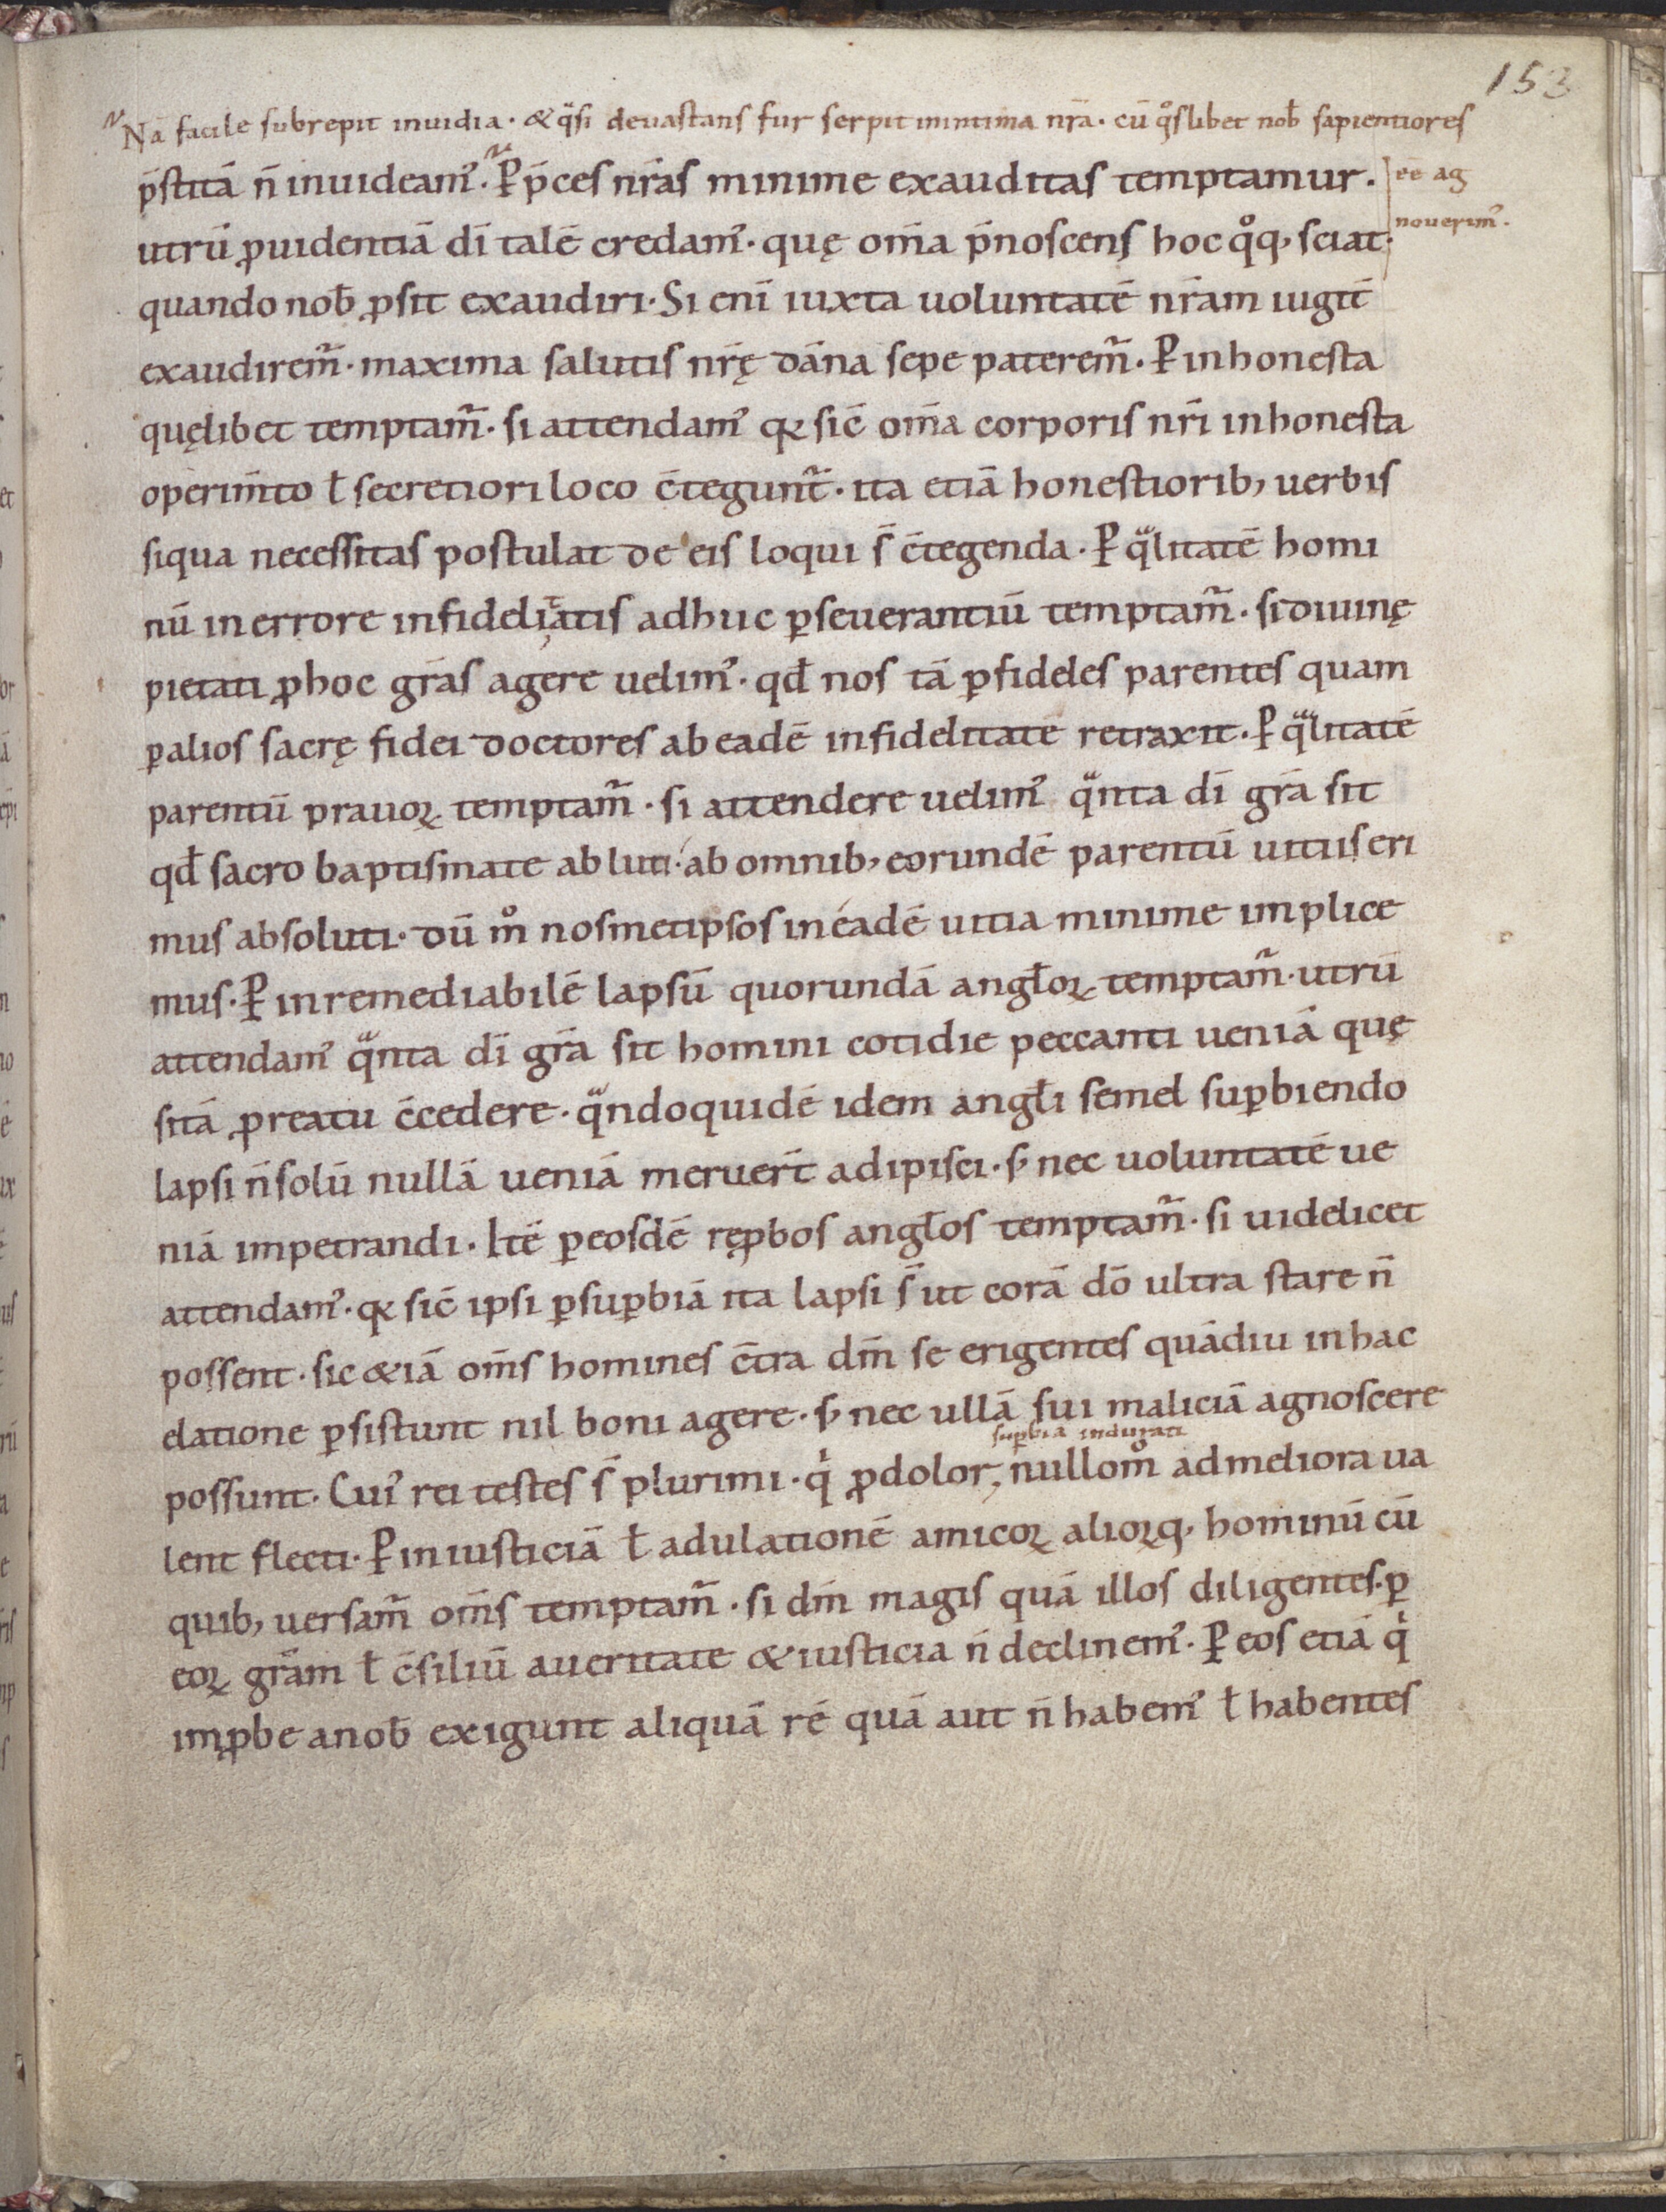 153
Nā facile subrepit inuidia · & q̈si deuastans fur serpit inintima nr̄a · cū q̊slibet nob̄ sapientiores
ēē ag
nouerim᾽.
p̄stitā n̄ inuideam᾽. P̲ p̄ces nr̄as minime exauditas temptamur.
utrū ꝓuidentiā dī talē credam᾽. quę om̄a p̄noscens hoc q̊q, sciat.
quando nob̄ ꝓsit exaudiri. Si enī iuxta uoluntatē nr̄am iugit̄
exaudirem̄. maxima salutis nr̄ę dāna sepe paterem̄. P̲ inhonesta
quęlibet temptam̄. si attendam᾽ qꝫ sic̄ om̄a corporis nr̄i inhonesta
operim̄to ł secretiori loco c̄tegunt̄. ita etiā honestiorib, uerbis
siqua necessitas postulat de eis loqui s̄ c̄tegenda. P̲ q̈litatē homi
nū in errore infidelitatis adhuc ꝑseuerantiū temptam̄. si diuinę
pietati ꝓhoc gr̄as agere uelim᾽. qđ nos tā ꝑfideles parentes quam
ꝑalios sacrę fidei doctores ab eadē infidelitate retraxit. P̲ q̈litatē
parentū prauoꝝ temptam̄. si attendere uelim᾽ q̈nta dī gr̄a sit
qđ sacro baptismate abluti. ab omnib, eorundē parentū uitiis eri
mus absoluti. dū m̊ nosmetipsos in eadē uitia minime implice
mus. P̲ inremediabilē lapsū quorundā angłoꝝ temptam̄. utrū
attendam᾽ q̈nta dī gr̄a sit homini cotidie peccanti ueniā quę
sitā ꝓreatu c̄cedere. q̈ndoquidē idem angłi semel suꝑbiendo
lapsi n̄ solū nullā ueniā meruer̄t adipisci. s; nec uoluntatē ue
niā impetrandi. Itē ꝑeosdē reꝓbos angłos temptam̄. si uidelicet
attendam᾽. qꝫ sic̄ ipsi ꝑsuꝑbiā ita lapsi s̄ ut corā dō ultra stare n̄
possent. sic &iā om̄s homines c̄tra dm̄ se erigentes quādiu in hac
elatione ꝑsistunt nil boni agere. s; nec ullā sui maliciā agnoscere
suꝑbia indurati
possunt. Cui᾽ rei testes s̄ plurimi. qi ꝓdolor, nullom̊ admeliora ua
lent flecti. P̲ iniusticiā ł adulationē amicoꝝ alioꝝq, hominū cū
quib, uersam̄ om̄s temptam̄. si dm̄ magis quā illos diligentes. ꝑ
eoꝝ gr̄am ł c̄siliū aueritate & iusticia n̄ declinem᾽. P̲ eos etiā qi
imꝓbe anob̄ exigunt aliquā rē quā aut n̄ habem᾽ ł habentes